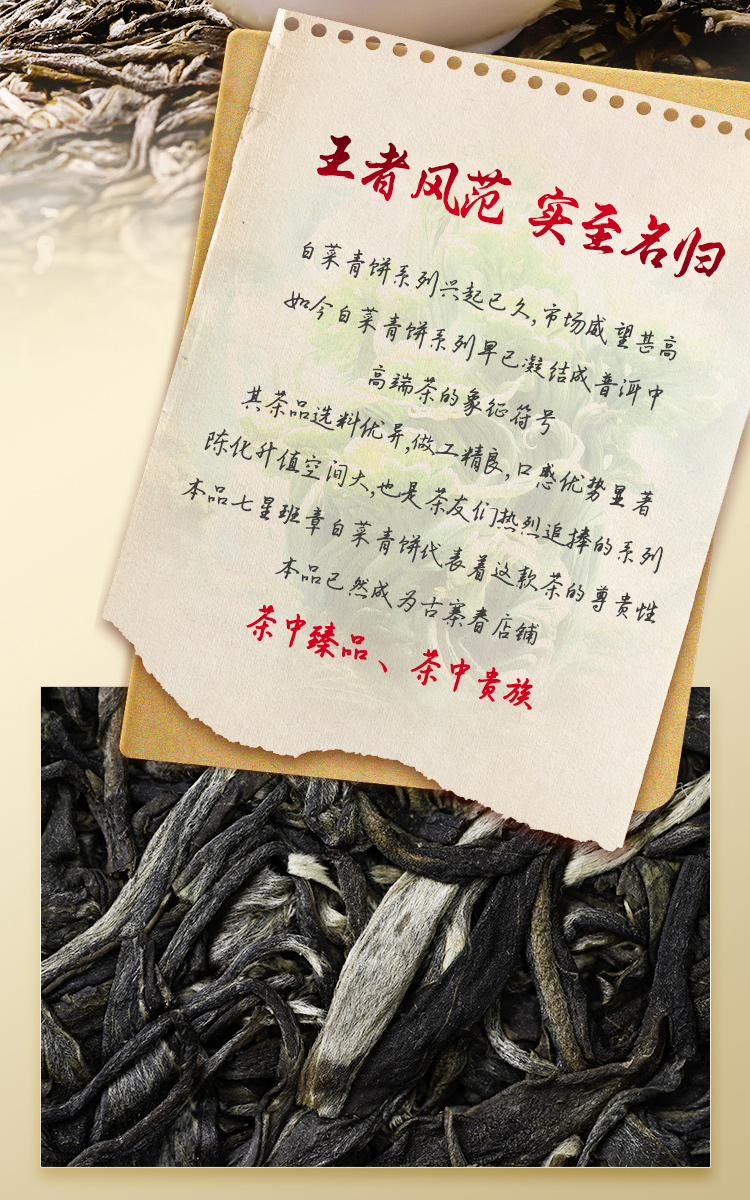 王者风范 实至名归
白菜青饼系列兴起已久,市场威望甚高
如今白菜青饼系列早已凝结成普洱中
高端茶的象征符号
其茶品选料优异,做工精良,口感优势显著
陈化升值空间大,也是茶友们热烈追捧的系列
本品七星班章白菜青饼代表着这款茶的尊贵性
本品已然成为古寨春店铺
茶中臻品、茶中贵族